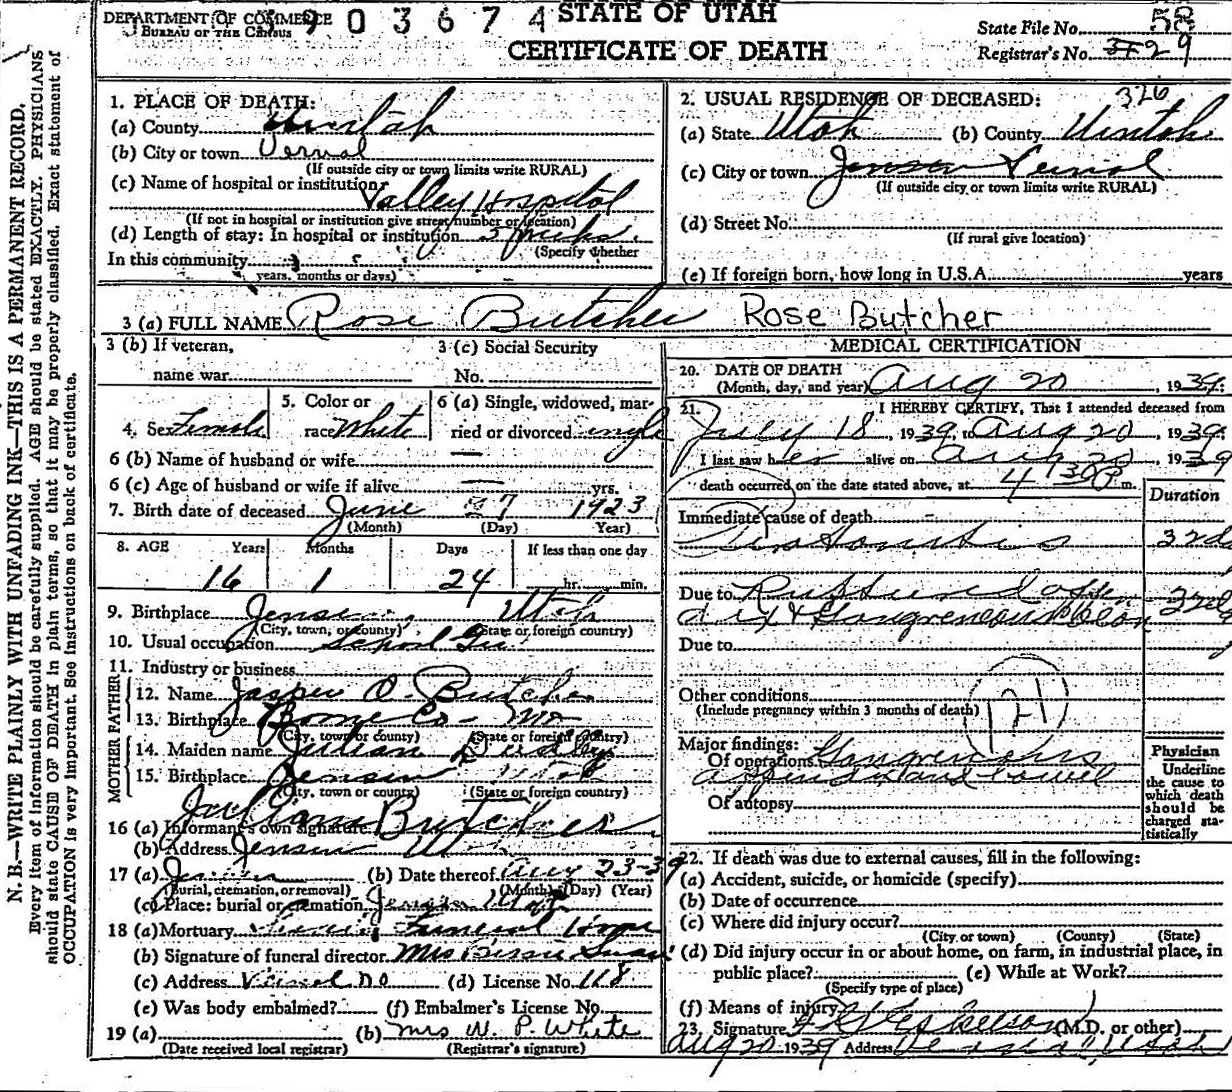 DEPARTMENT OF COMMERCE
BUREAU OF THE CENSUS
3903674
STATE OF UTAH
CERTIFICATE OF DEATH
State File No. 58
Registrar's No. 29
N. B.—WRITE PLAINLY WITH UNFADING INK—THIS IS A PERMANENT RECORD.
Every item of information should be carefully supplied. AGE should be stated EXACTLY. PHYSICIANS
should state CAUSE OF DEATH in plain terms, so that it may be properly classified. Exact statement of
OCCUPATION is very important. See instructions on back of certificate.
1. PLACE OF DEATH:
(a) County Uintah
(b) City or town Vernal
(If outside city or town limits write RURAL)
(c) Name of hospital or institution:
Valley Hospital
(If not in hospital or institution give street number or location)
(d) Length of stay: In hospital or institution 5 weeks.
(Specify whether
In this community
years, months or days)
2. USUAL RESIDENCE OF DECEASED: 326
(a) State Utah (b) County Uintah
(c) City or town Jensen Vernal
(If outside city or town limits write RURAL)
(d) Street No.
(If rural give location)
(e) If foreign born, how long in U.S.A. years
3 (a) FULL NAME Rose Butcher Rose Butcher
3 (b) If veteran,
name war
3 (c) Social Security
No.
4. Sex Female
5. Color or
race White
6 (a) Single, widowed, mar-
ried or divorced single
6 (b) Name of husband or wife —
6 (c) Age of husband or wife if alive — yrs.
7. Birth date of deceased June 27 1923
(Month) (Day) Year)
8. AGE Years Months Days If less than one day
16 1 24 hr. min.
9. Birthplace Jensen, Utah
(City, town, or county) (State or foreign country)
10. Usual occupation School Girl
11. Industry or business
FATHER
12. Name Jasper O. Butcher
13. Birthplace Boone Co - Mo
(City, town or county) (State or foreign country)
MOTHER
14. Maiden name Julian Dudley
15. Birthplace Jensen Utah
(City, town or county) (State or foreign country)
16 (a) Informant's own signature Jullian Butcher
(b) Address Jensen Utah
17 (a) Jensen (b) Date thereof Aug 23-39
(Burial, cremation, or removal) (Month) (Day) (Year)
(c) Place: burial or cremation Jensen Utah
18 (a) Mortuary Funeral Home
(b) Signature of funeral director Mrs Swain
(c) Address Vernal (d) License No. 118
(e) Was body embalmed? (f) Embalmer's License No.
19 (a) (b) Mrs W. P. White
(Date received local registrar) (Registrar's signature)
MEDICAL CERTIFICATION
20. DATE OF DEATH
(Month, day, and year) Aug 20, 1939.
21. I HEREBY CERTIFY, That I attended deceased from
July 18, 1939, to Aug 20, 1939.
I last saw her alive on Aug 20, 1939
death occurred on the date stated above, at 4 30 P m.
Duration
Immediate cause of death
Peritonitis 32 d
Due to Ruptured appen
dix & Gangreneous 32 d
Due to
Other conditions
(Include pregnancy within 3 months of death)
121
Major findings:
Of operations Gangreneous
appendix and bowel
Of autopsy
Physician
Underline
the cause to
which death
should be
charged sta-
tistically
22. If death was due to external causes, fill in the following:
(a) Accident, suicide, or homicide (specify)
(b) Date of occurrence
(c) Where did injury occur?
(City or town) (County) (State)
(d) Did injury occur in or about home, on farm, in industrial place, in
public place? (e) While at Work?
(Specify type of place)
(f) Means of injury
23. Signature Eskelson (M.D. or other)
Aug 20 1939 Address Vernal, Utah